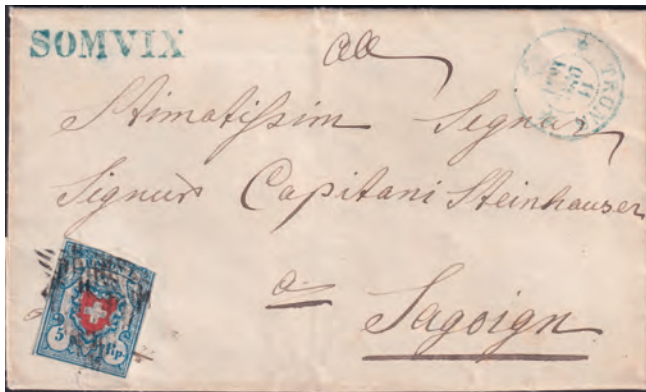 SOMVIX
All
TRUNS
Stimatissim Segnar
Signur Capitani Steinhauser
a
Sagoign
5 Rp.